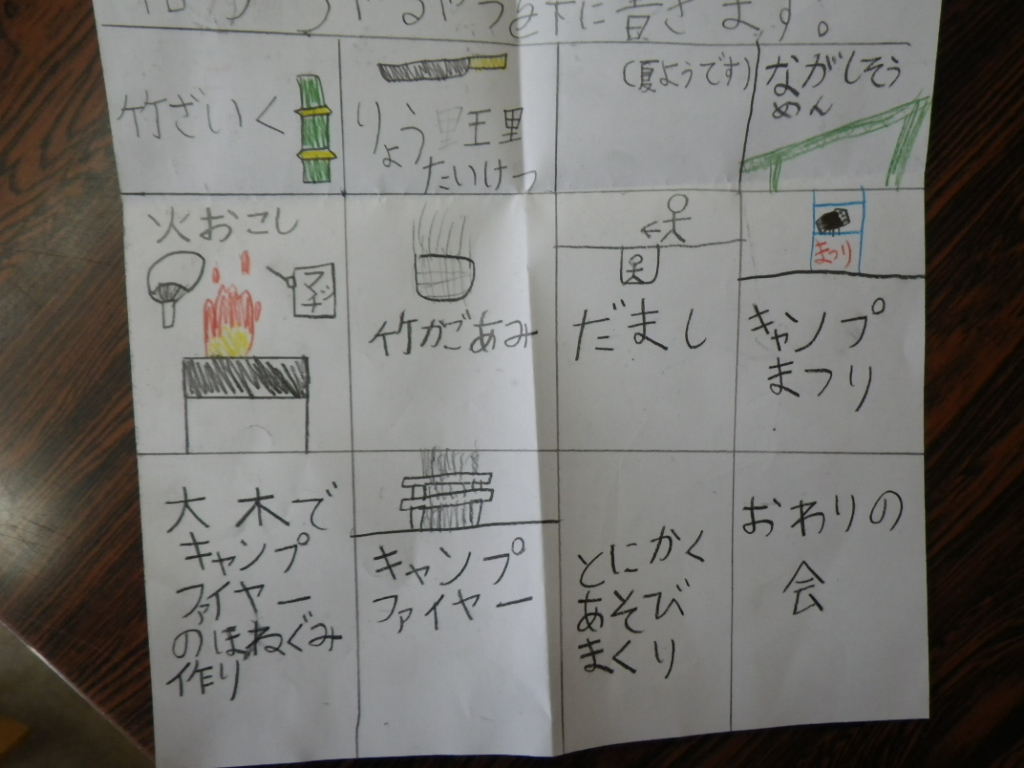 つやるやつを下に書きます。
竹ざいく
りょう理
たいけつ
(夏ようです)
ながしそう
めん
火おこし
竹かごあみ
だまし
まつり
キャンプ
まつり
大木で
キャンプ
ファイヤー
のほねぐみ
作り
キャンプ
ファイヤー
とにかく
あそび
まくり
おわりの
会